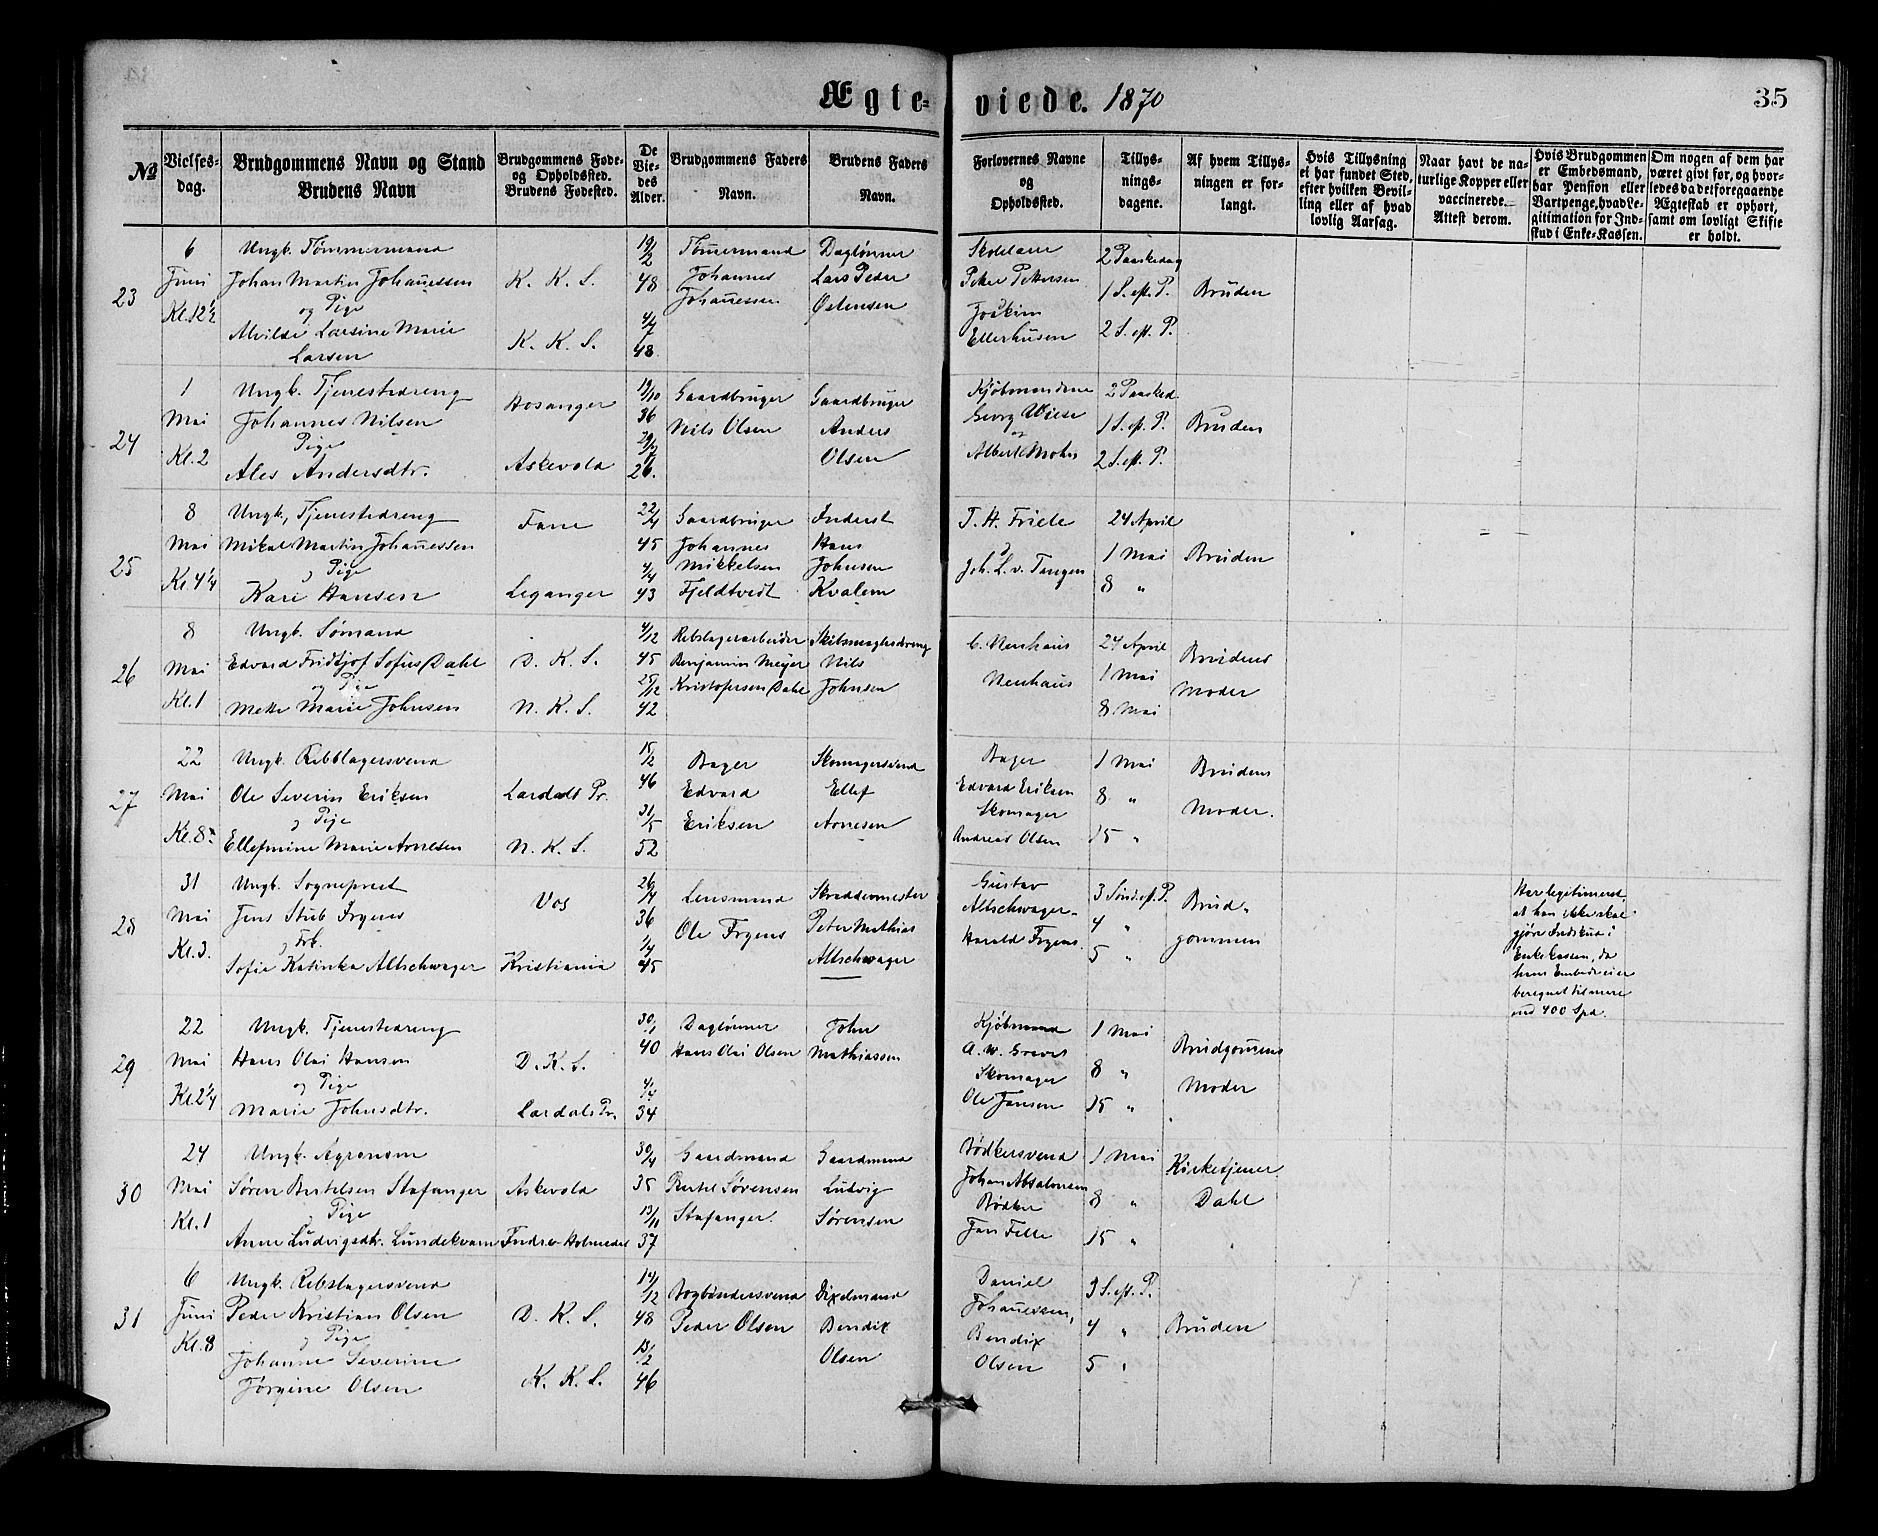 Ægte-
viede. 1870
35
No
Vielses-
dag.
Brudgommens Navn og Stand
Brudens Navn
Brudgommens Føde-
og Opholdssted.
Brudens Fødested.
De
Vie-
des
Alder.
Brudgommens Faders
Navn.
Brudens Faders
Navn.
Forlovernes Navne
og
Opholdssted.
Tillys-
nings-
dagene.
Af hvem Tillys-
ningen er for-
langt.
Hvis Tillysning
ei har fundet Sted,
efter hvilken Bevil-
ling eller af hvad
lovlig Aarsag.
Naar havt de na-
turlige Kopper eller
vaccinerede.
Attest derom.
Hvis Brudgommen
er Embedsmand,
har Pension eller
Vartpenge, hvad Le-
gitimation for Ind-
skud i Enke-Kassen.
Om nogen af dem har
været givt før, og hvor-
ledes da det foregaaende
Ægteskab er ophørt,
samt om lovligt Skifte
er holdt.
23
6
Juni
Kl. 12½
Ungk. Tømmermand
Johan Martin Johanessen
og Pige
Alvilde Larsine Marie
Larsen
K. K. S.
K. K. S.
19/2
48
4/7
48.
Tømermand
Johannes
Johanessen
Daglønner
Lars Peder
Østensen
Peter Pettersen
Joakim
Ellerhusen
2 Paaskedag
1 S. eft. P.
2 S. eft. P.
Bruden
24
1
Mai
Kl. 2
Ungk. Tjenestedreng
Johannes Nilsen
Pige
Ales Andersdtr.
Hosanger
Askevold
19/10
36
26.
Gaardbruger
Nils Olsen
Gaardbruger
Anders
Olsen
Kjøbmændene
Georg Wiese
og
Albert Mohn
2 Paasked.
1 S. eft. P.
2 S. eft. P.
Bruden
25
8
Mai
Kl. 4¼
Ungk., Tjenestedreng
Mikal Martin Johanessen
og Pige
Kari Hansen
Fane
Leganger
22/4
45
4/4
43
Gaardbruger
Johannes
Mikkelsen
Fjeldtvedt
Inderst
Hans
Johnsen
Kvalem
T. H. Friele
Joh. L. v. Tangen
24 April
1 Mai
8 "
Bruden
26
8
Mai
Kl. 1
Ungk. Sømand
Edvard Fridtjof Sofus Dahl
og Pige
Mette Marie Johnsen
D. K. S.
N. K. S.
4/12
45
25/12
42
Rebslagerarbeider
Benjamin Meyer
Kristofersen Dahl
Nils
Johnsen
C. Neuhaus
Neuhaus
24 April
1 Mai
8 Mai
Brudens
Moder
27
22
Mai
Kl. 8
Ungk. Rebslagersvend
Ole Severin Eriksen
og Pige
Ellefmine Marie Arnesen
Lardals Pr.
N. K. S.
15/2
46
31/5
52
Bager
Edvard
Eriksen
Skomagersvend
Ellef
Arnesen
Bager
Edvard Eriksen
Skomager
Andreas Olsen
1 Mai
8 "
15 "
Brudens
Moder.
28
31
Mai
Kl. 3.
Ungk. Sogneprest
Jens Stub Irgens
og Frk.
Sofie Katinka Altschwager
Vos
Kristiania
26/4
36
1/4
45
Lensmand
Ole Irgens
Skreddermester
Peter Mathias
Altschwager
Gustav
Altschwager.
Harald Irgens.
3 Sønd. eft. P.
4 "
5 "
Brud-
gommen
Har legitimeret,
at han ikke skal
gjøre Indskud i
Enkekassen, da
hans Embede eier
beregnet til mere
end 400 Spd.
29
22
Mai
Kl. 2¼
Ungk. Tjenestedreng
Hans Olai Hansen
og Pige
Marie Johnsdtr.
D. K. S.
Lardals Pr.
30/1
40
4/4
34
Daglønner
Hans Olai Olsen
John
Mathiassen
Kjøbmand
A. W. Greves
Skomager
Ole Jansen
1 Mai
8 "
15 "
Brudgomens
Moder
30
24
Mai
Kl. 1
Ungk. Agronom
Søren Bertelsen Stafanger
og Pige
Anne Ludvigsdtr. Lundekvam
Askevold
Indre Holmedal
30/4
35
13/11
37
Gaardmand
Bertel Sørensen
Stafanger.
Gaardmand
Ludvig
Sørensen
Bødkersvend
Johan Absalonsen
Bødker
Jan Felle
1 Mai
8 "
15 "
Kirketjener
Dahl
31
6
Juni
Kl. 8
Ungk. Rebslagersvend
Peder Kristian Olsen
og Pige
Johanne Severine
Jørgine Olsen
D. K. S.
K. K. S.
14/12
48
13/2
46
Bogbindersvend
Peder Olsen
Dixelmand
Bendix
Olsen
Daniel
Johanessen,
Bendix
Olsen
3 S. eft. P.
4 "
5 "
Bruden